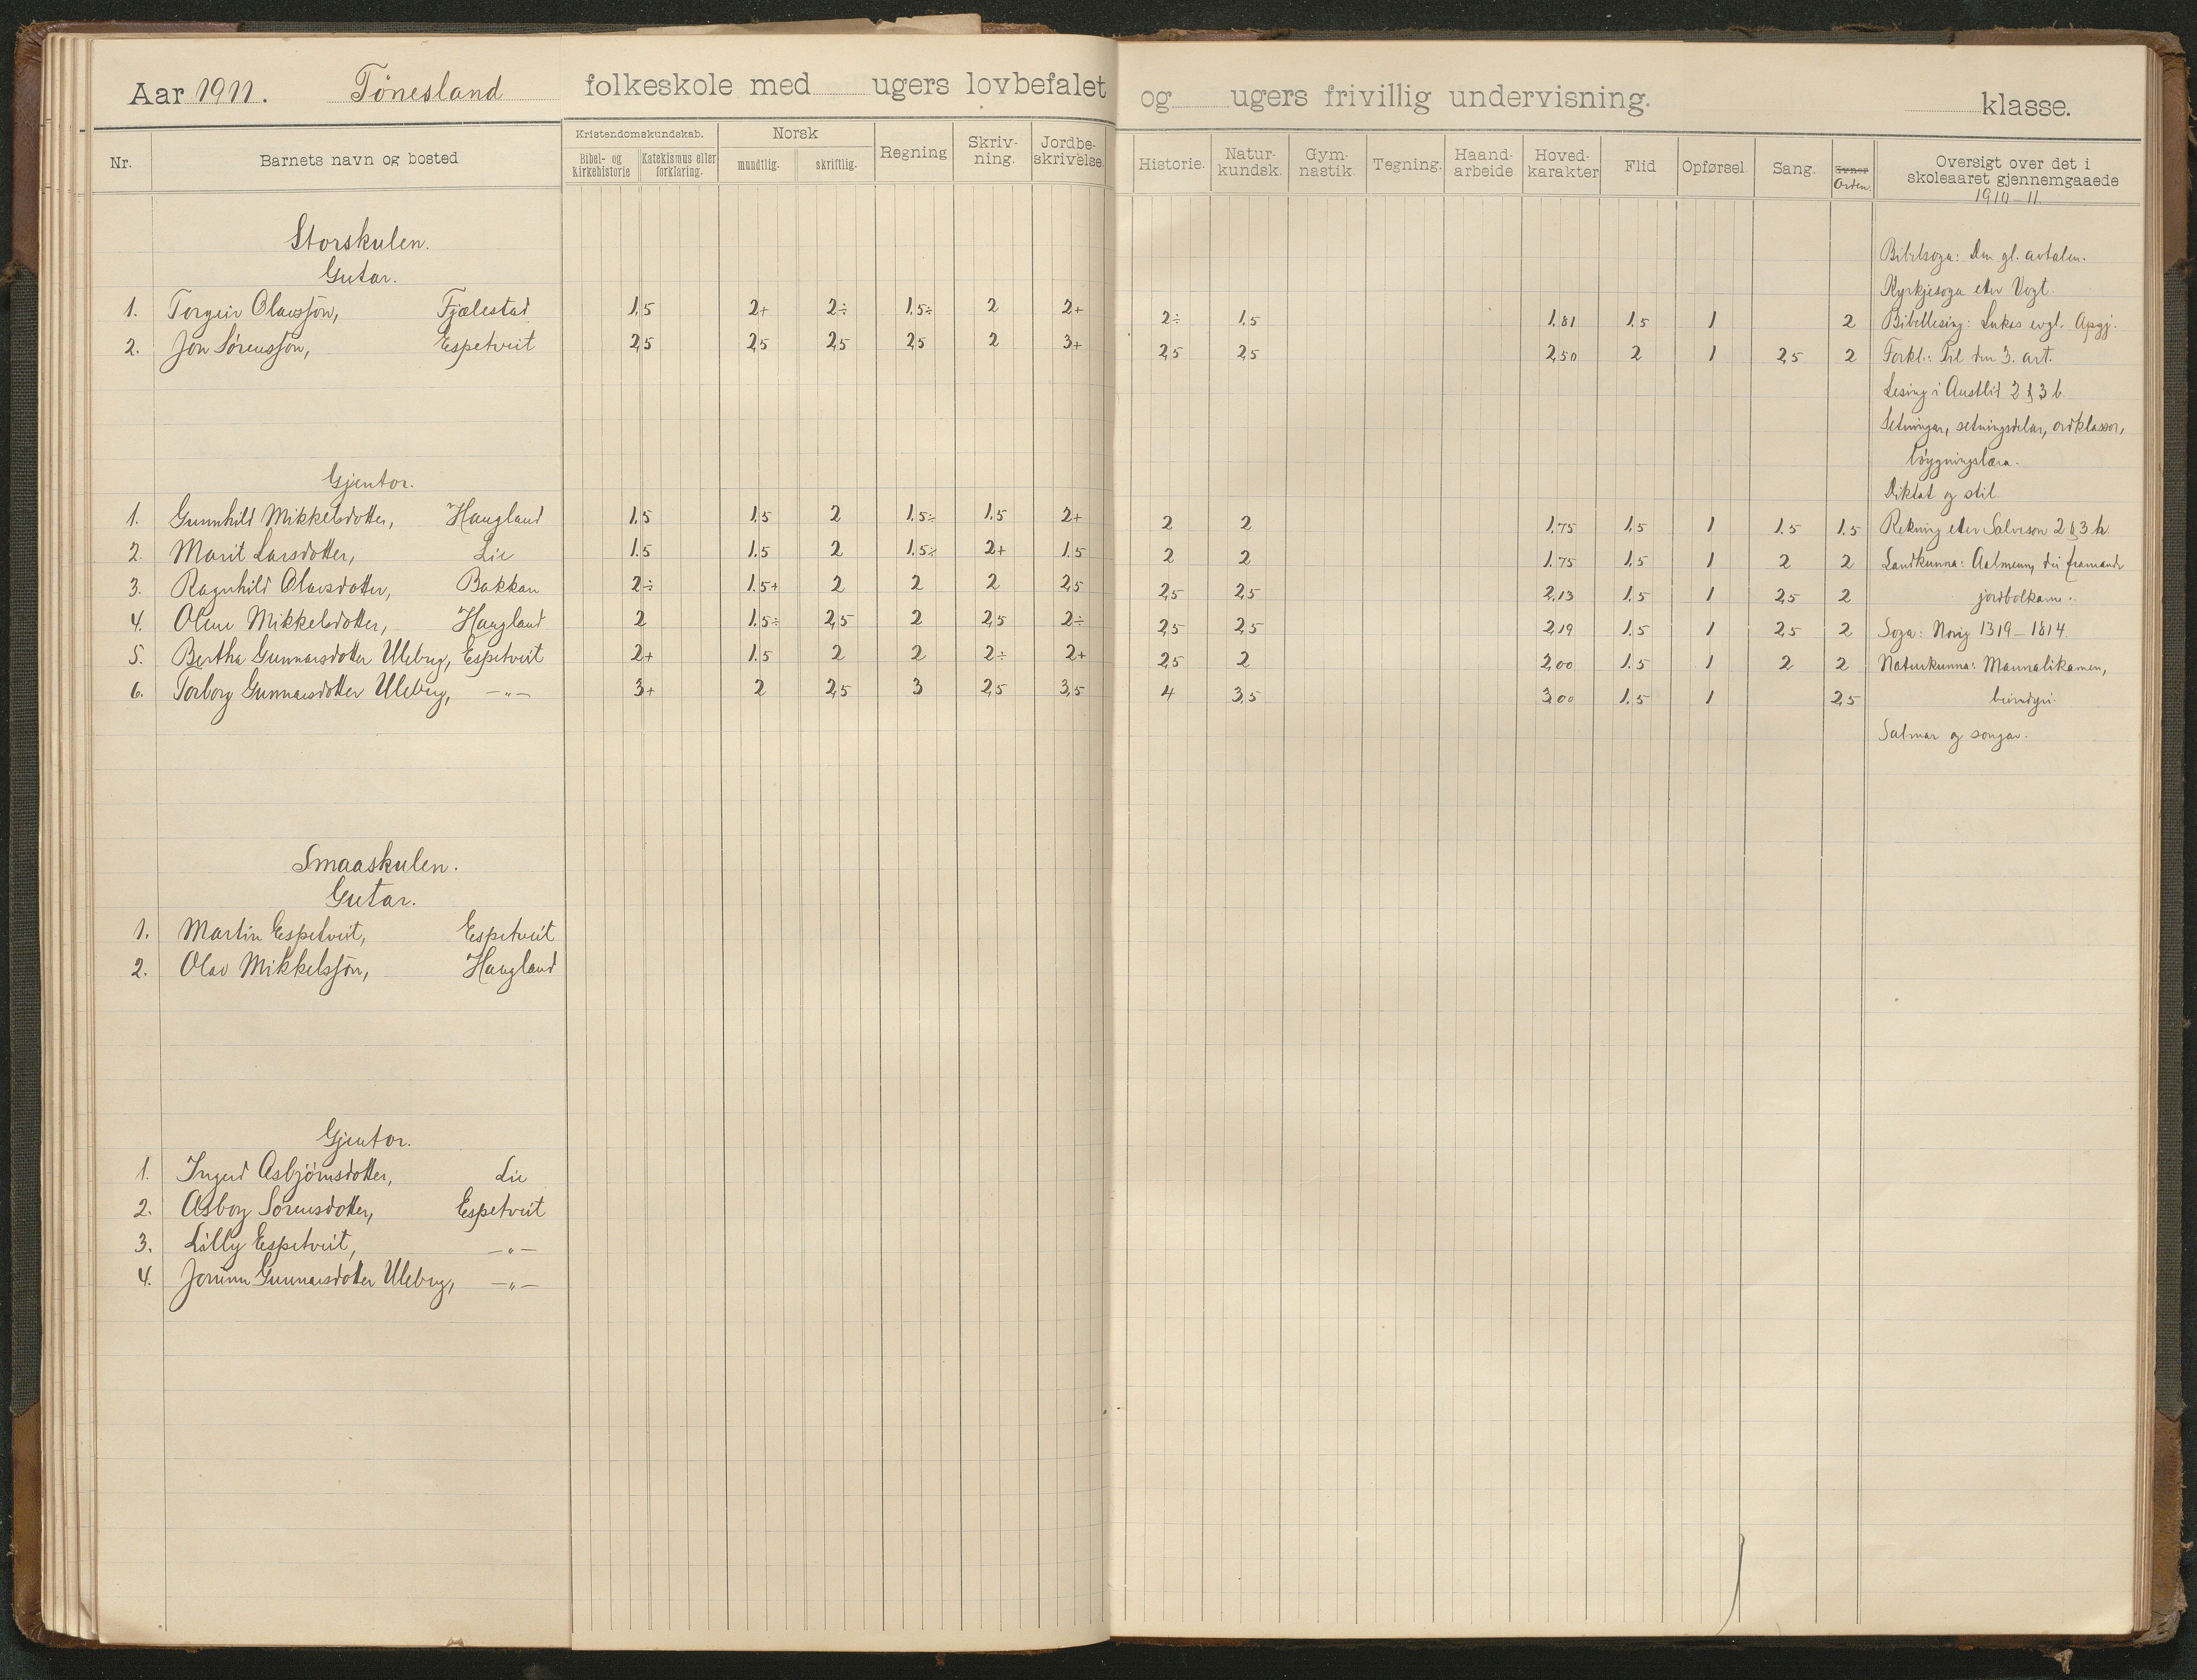 Aar 1911. Tønesland folkeskole med ugers lovbefalet og ugers frivillig undervisning. klasse.
Nr. Barnets navn og bosted Kristendomskundskab. Bibel- og Kirkehistorie Katekismus eller forklaring. Norsk mundtlig. skriftlig. Regning Skriv-ning. Jordbe-skrivelse. Historie. Natur-kundsk. Gym-nastik. Tegning. Haand-arbeide. Hoved-karakter Flid Opførsel. Sang. Evner Orden. Oversigt over det i skoleaaret gjennemgaaede 1910-11
Storskulen.
Bibelsoga: Den gl. avtalen.
Gutar.
Kyrkjesoga etter Vogt.
1. Torgeir Olavssøn, Fjælestad 1.5 2+ 2÷ 1.5÷ 2 2+ 2÷ 1.5 1.81 1.5 1 2 Bibellesing: Lukas evgl. Apgj.
2. Jon Sørensson, Espetveit 2,5 2,5 2,5 2,5 2 3+ 2,5 2,5 2,50 2 1 2,5 2 Forkl.: Til den 3. art.
Lesing i Austlid 2 & 3 b.
Setningar, setningsdelar, ordklassor,
bøygningslæra.
Gjentor.
Diktat og stil.
1. Gunnhild Mikkelsdotter, Haugland 1.5 1.5 2 1.5÷ 1.5 2+ 2 2 1.75 1.5 1 1.5 1.5 Rekning etter Salveson 2 & 3 h.
2. Marit Larsdotter, Lie 1.5 1.5 2 1.5÷ 2+ 1.5 2 2 1.75 1.5 1 2 2 Landkunna: Aalmenn, dei framande
3. Ragnhild Olavsdotter, Bakkan 2÷ 1.5+ 2 2 2 2,5 2,5 2,5 2,13 1.5 1 2,5 2 jordbolkane.
4. Olene Mikkelsdotter, Haugland 2 1.5÷ 2,5 2 2,5 2÷ 2,5 2,5 2,19 1.5 1 2,5 2 Soga: Norig 1319-1814
5. Bertha Gunnarsdotter Uleberg, Espetveit 2+ 1.5 2 2 2÷ 2+ 2,5 2 2,00 1.5 1 2 2 Naturkunna: Mannalikamen,
6. Torborg Gunnarsdotter Uleberg, -"- 3+ 2 2,5 3 2,5 3,5 4 3,5 3,00 1.5 1 2,5
Salmar og songar.
Smaaskulen.
Gutar.
1. Martin Espetveit, Espetveit
2. Olav Mikkelssøn, Haugland
Gjentor.
1. Ingerd Asbjørnsdotter, Lie
2. Asborg Sørensdotter, Espetveit
3. Lilly Espetveit, -"-
4. Jorunn Gunnarsdotter Uleberg, -"-